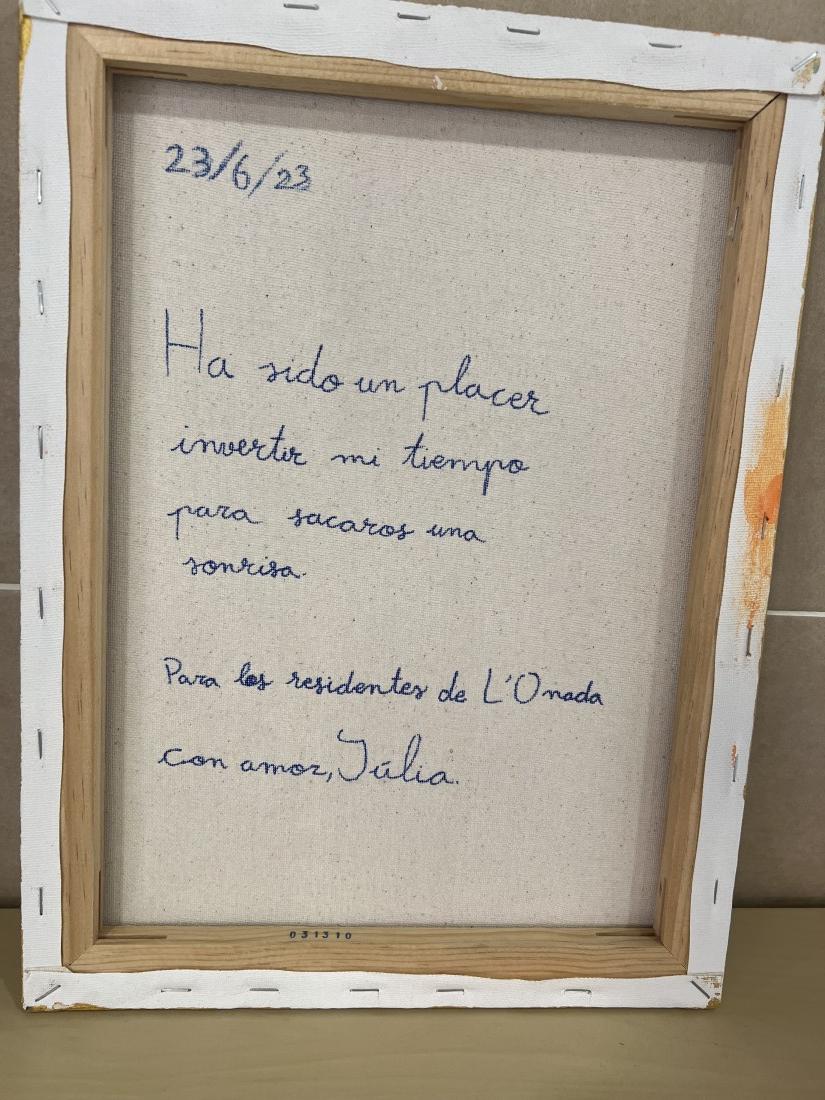 23/6/23
Ha sido un placer
invertir mi tiempo
para sacaros una
sonrisa.
Para los residentes de L'Onada
con amor, Júlia.
031310